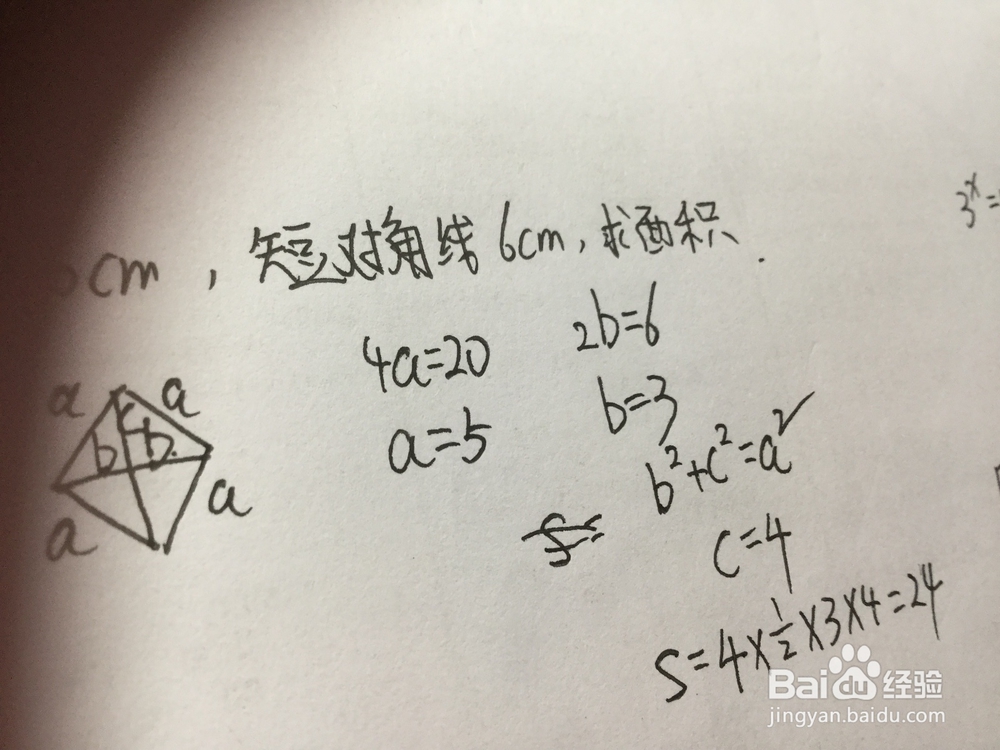 cm，短对角线6cm，求面积.
3ˣ=
4a=20
2b=6
a=5
b=3
b²+c²=a²
c=4
S=
S=4×1/2×3×4=24
a
a
c
b
b
a
a
Baidu经验
jingyan.baidu.com